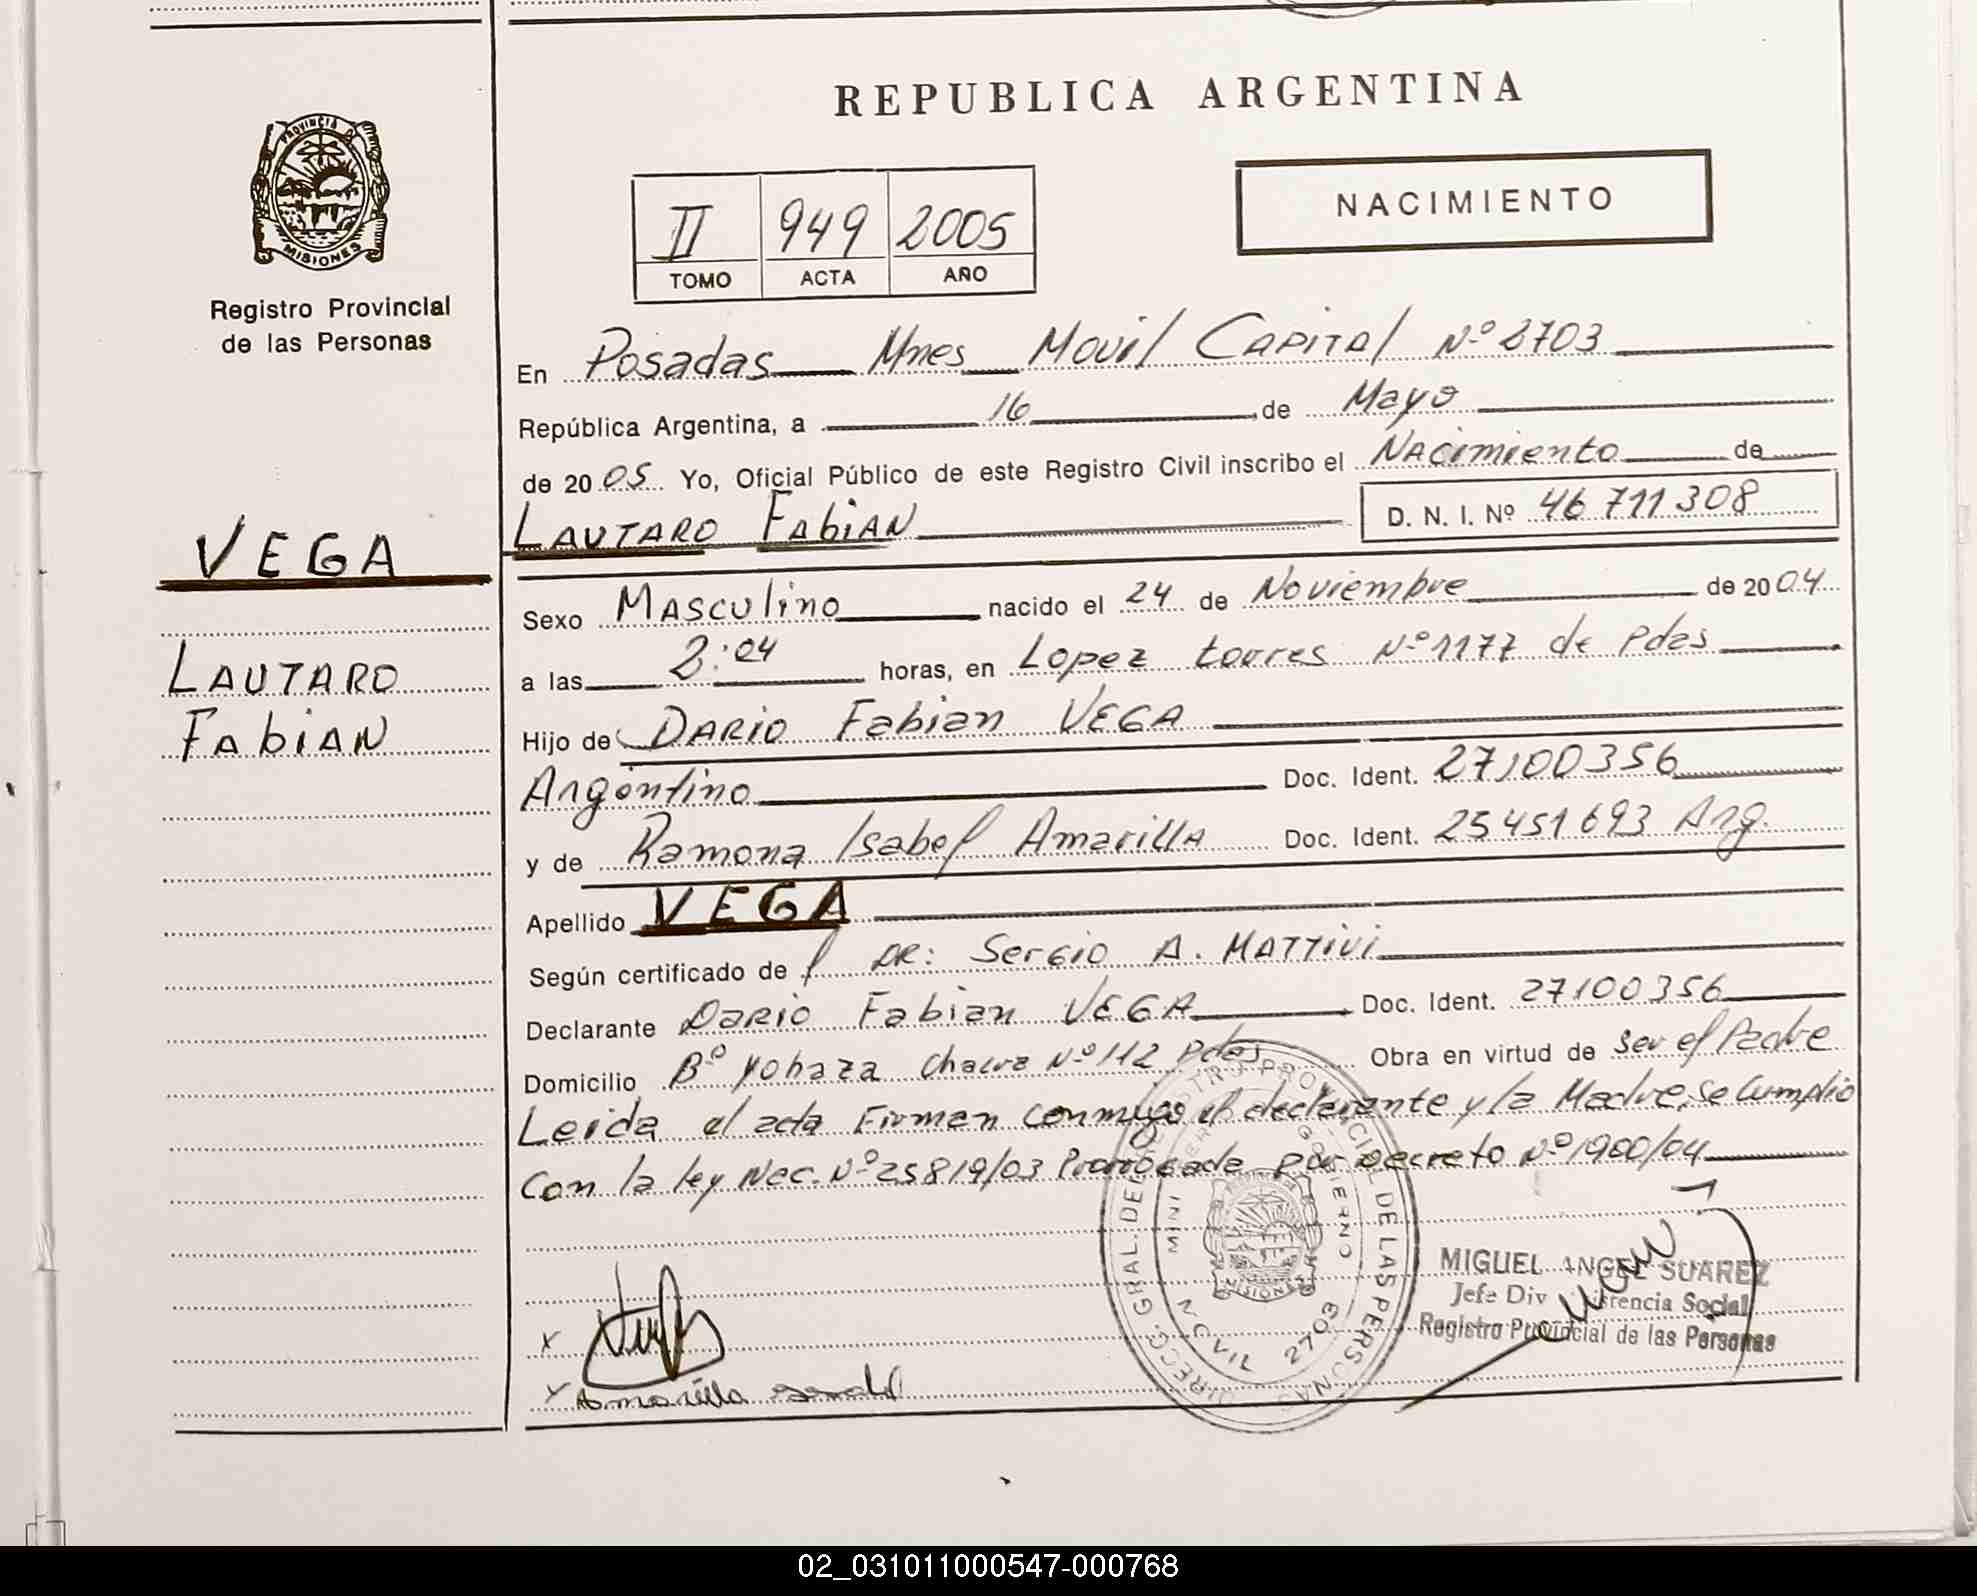 PROVINCIA DE
MISIONES
Registro Provincial
de las Personas
VEGA
LAUTARO
FABIAN
REPUBLICA ARGENTINA
II 949 2005
TOMO ACTA AÑO
NACIMIENTO
En Posadas Mnes Movil CAPITAL Nº 2703
República Argentina, a 16 de Mayo
de 2005 Yo, Oficial Público de este Registro Civil inscribo el NACimiento de
LAUTARO FAbiAN D. N. I. Nº 46 711 308
Sexo MAScUlino nacido el 24 de Noviembre de 2004
a las 2:04 horas, en Lopez torres Nº 1177 de Pdas
Hijo de DARIO Fabian VEGA
Argentino Doc. Ident. 27100356
y de Ramona Isabel Amarilla Doc. Ident. 25451693 Arg.
Apellido VEGA
Según certificado de DR: Sergio A. MATTIVI
Declarante DARIO Fabian VEGA Doc. Ident. 27100356
Domicilio Bº Yohaza Chacra Nº 112 Pdas Obra en virtud de ser el Padre
Leida el acta Firman conmigo el declarante y la Madre, se Cumplio
Con la ley Nac. Nº 25819/03 Prorrogada por Decreto Nº 1900/04
DIRECC. GRAL. DEL REGISTRO PROVINCIAL DE LAS PERSONAS
GOBIERNO
MISIONES
MOVIL 2703
MIGUEL ANGEL SUAREZ
Jefe Div Asistencia Social
Registro Provincial de las Personas
X
X Amarilla
02_031011000547-000768